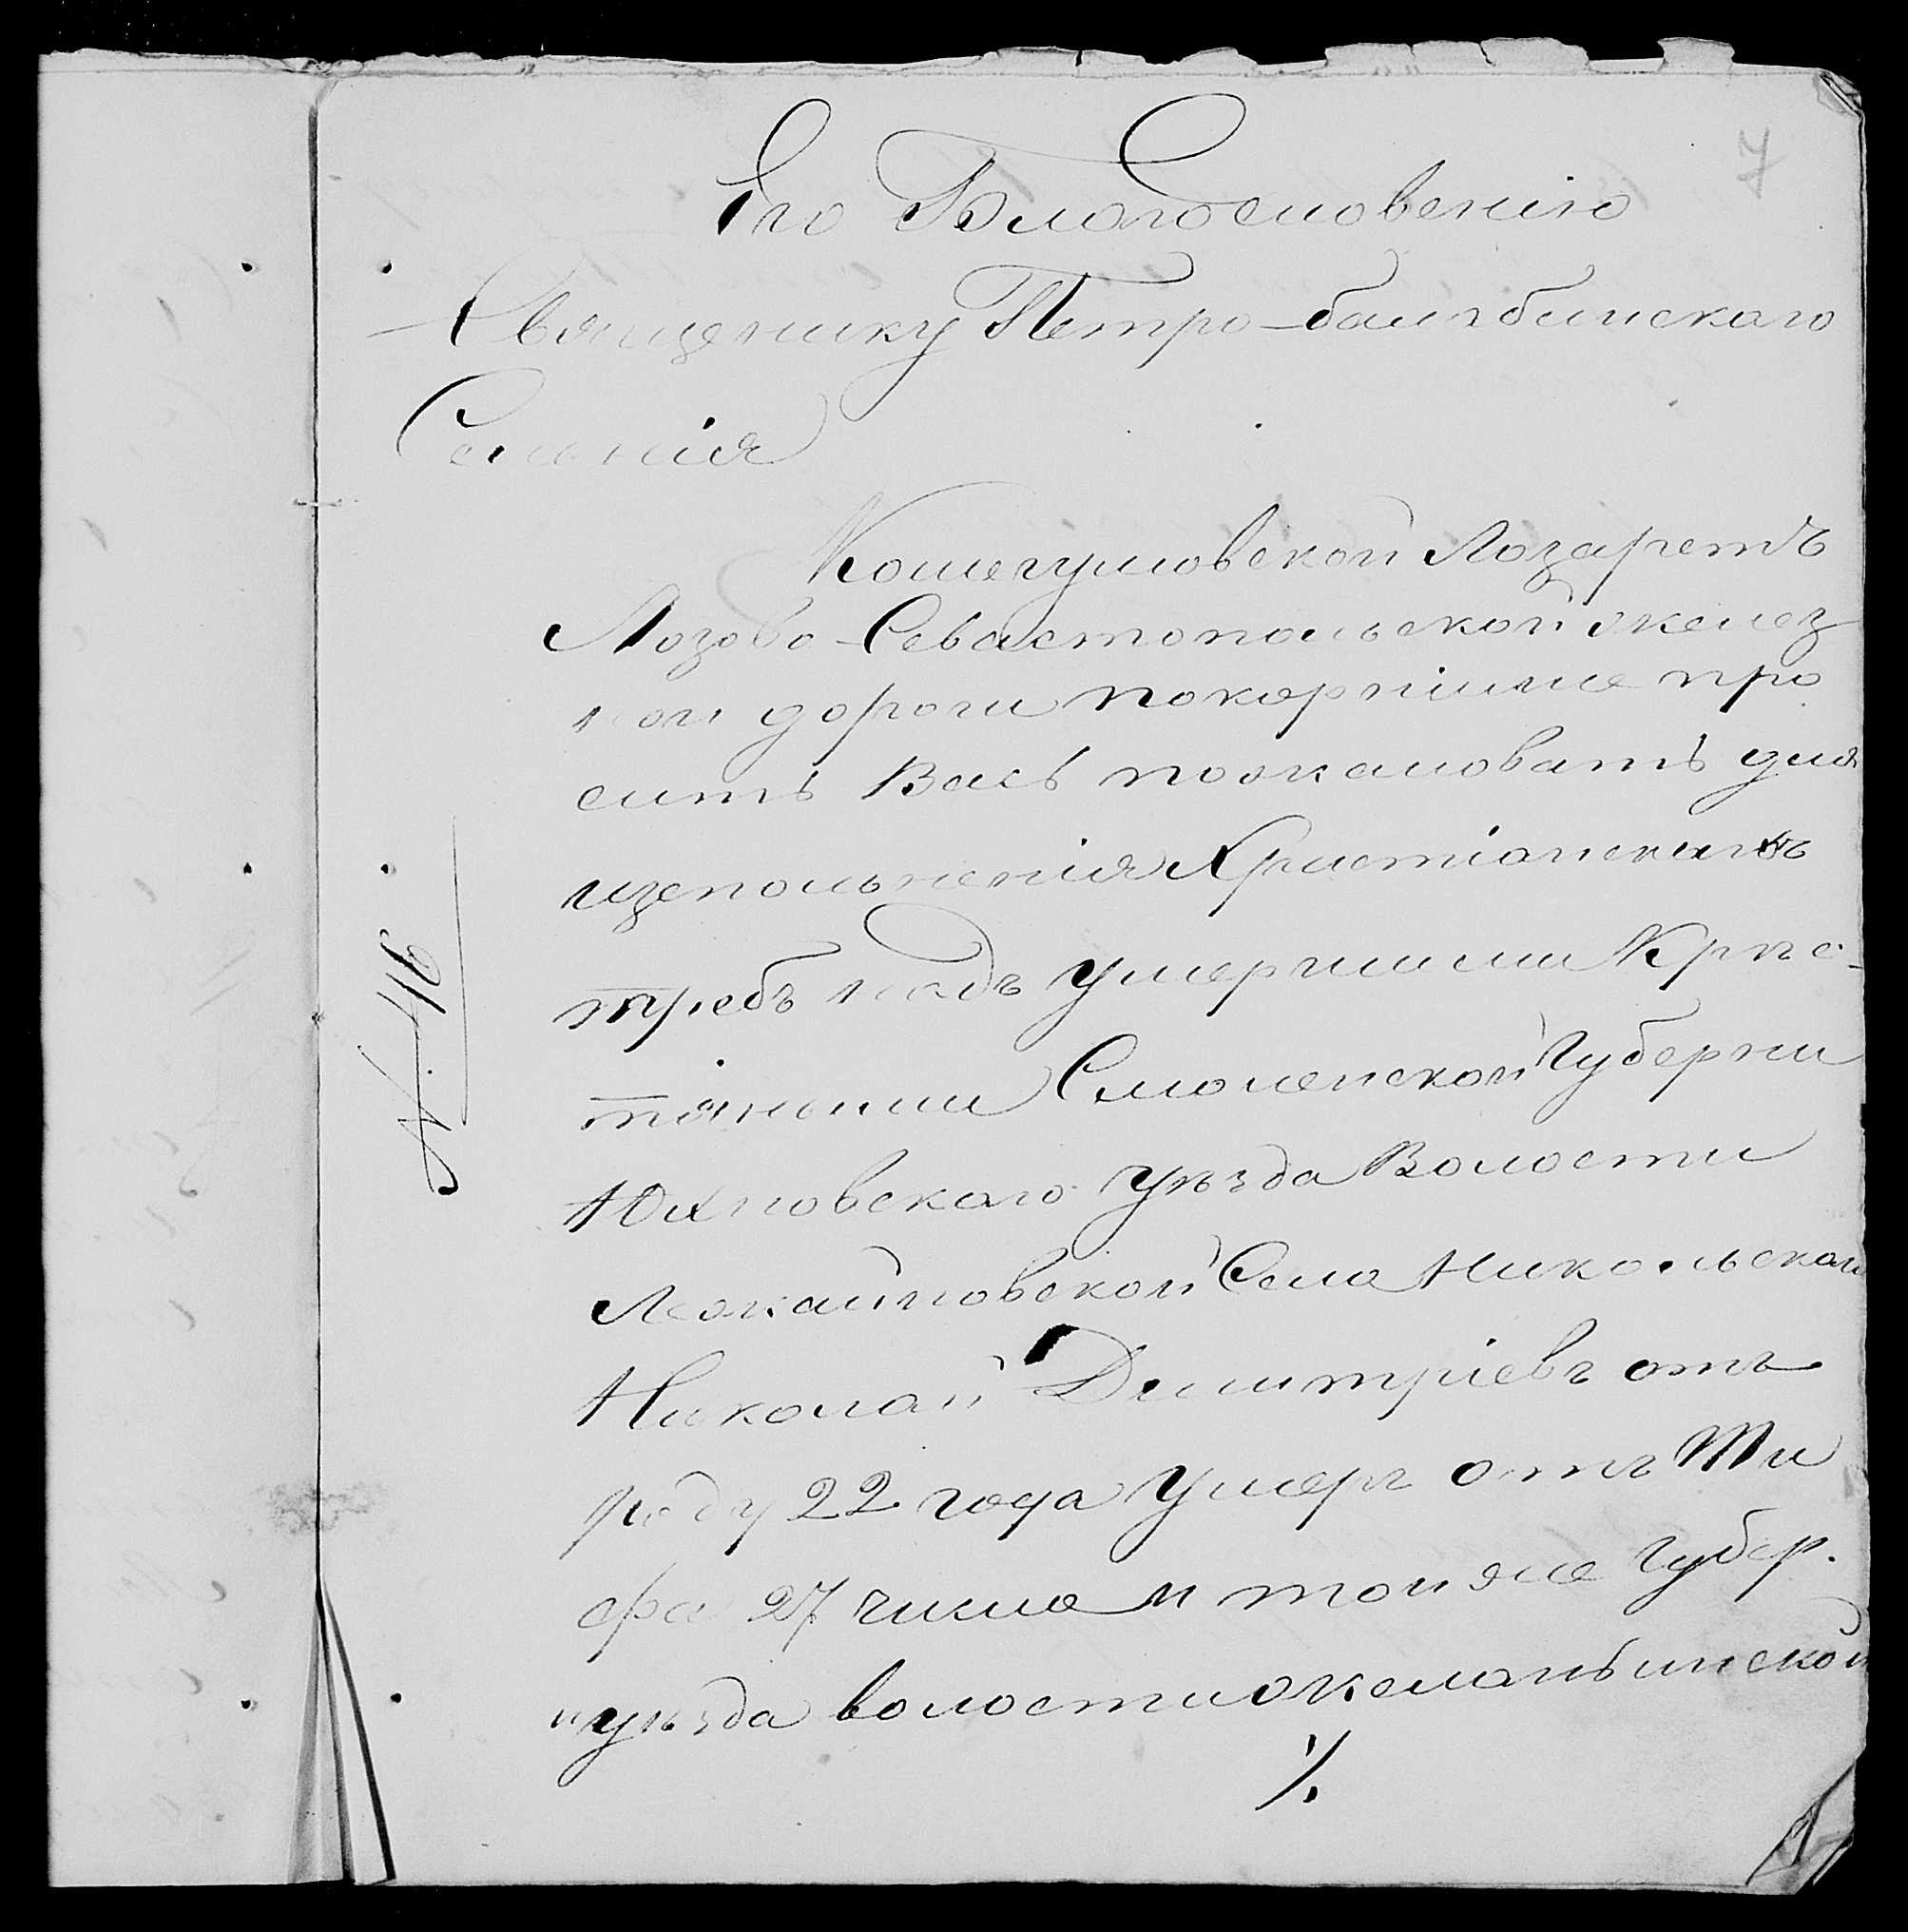 7
Его Благословенію
Священику Петро-балабинскаго
Селенія
Кошегумовской Лозаретъ
Лозово-Севастопольской желез
ной дороги покорнише про
сить Васъ пожаловать для
изепольненія Христіанскихъ
требъ надъ умершими Крес-
тянами Смоленской Губерни
Юхновскаго уезда Волости
Села Никольскаго
Николай Димитріевъ отъ
роду 22 года Умеръ отъ Ти
фа 27 числа и той же Губер.
и уезда волости
№ 46